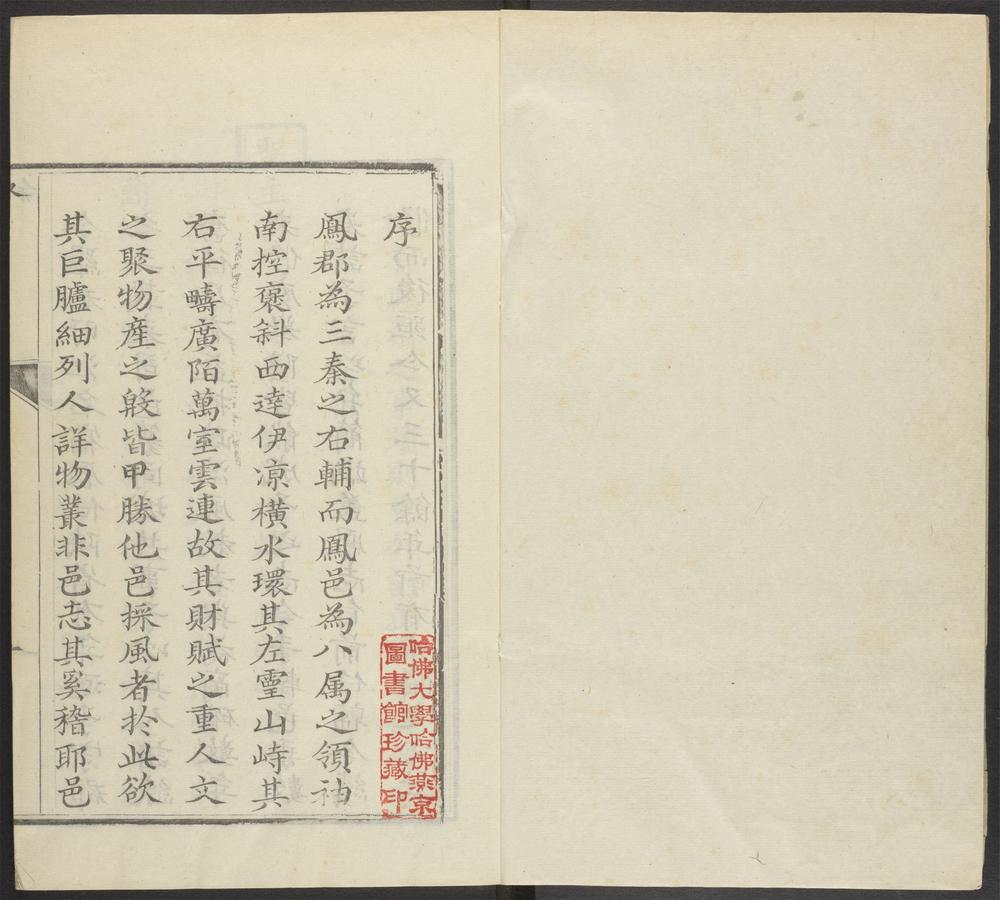 序
鳳郡為三秦之右輔而鳳邑為八属之領袖
南控褒斜西達伊凉橫水環其左靈山峙其
右平疇廣陌萬室雲連故其財賦之重人文
之聚物産之殷皆甲勝他邑採風者扵此欲
其巨臚細列人詳物叢非邑志其奚稽耶邑
哈佛大學哈佛燕京
圖書館珍藏印